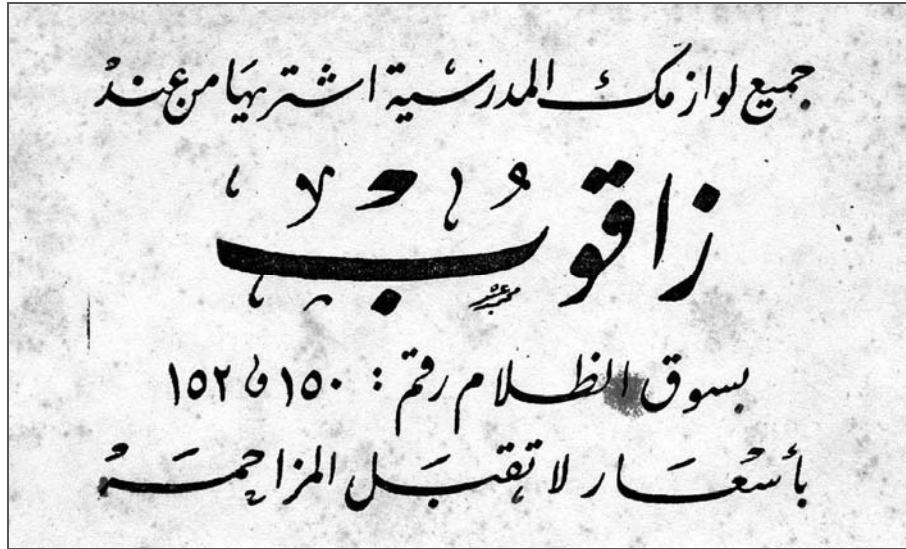 جميع لوازمك المدرسية اشتريها من عند
زاقوب
بسوق الظلام رقم : ١٥٠ و ١٥٢
بأسعار لا تقبل المزاحمة